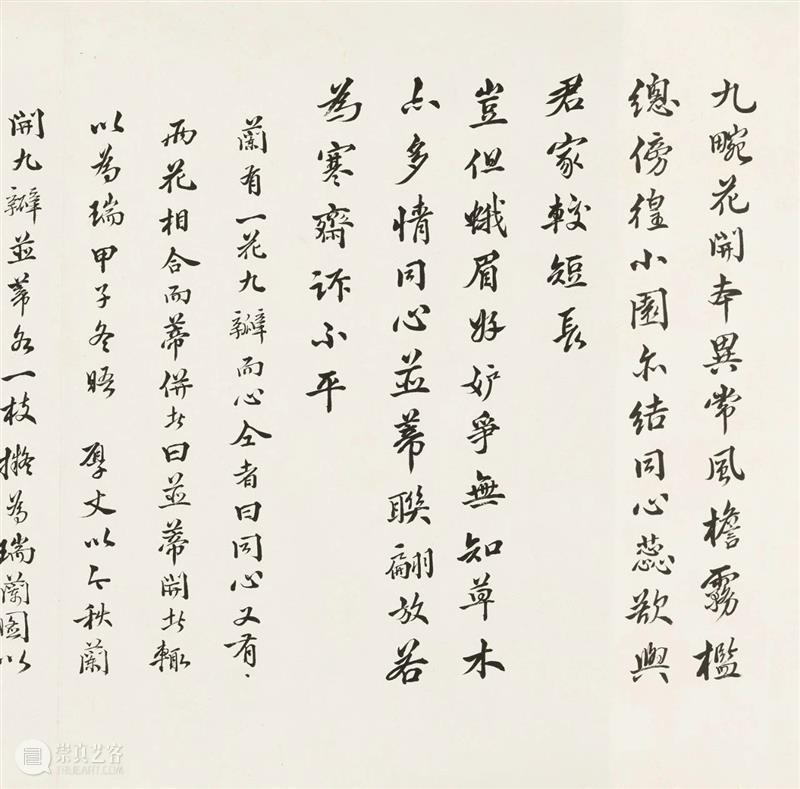 九畹花開本異常風檐霧檻
總傍徨小園亦結同心蕊欲與
君家較短長
豈但蛾眉好妒爭無知草木
亦多情同心並蒂聯翩放若
為寒齋訴不平
蘭有一花九瓣而心仝者曰同心又有
兩花相合而蒂併者曰並蒂開者輒
以為瑞甲子冬晤 厚丈以今秋蘭
開九瓣並蒂各一枝擬為瑞蘭圖以
崇真艺客
TRUEART.COM